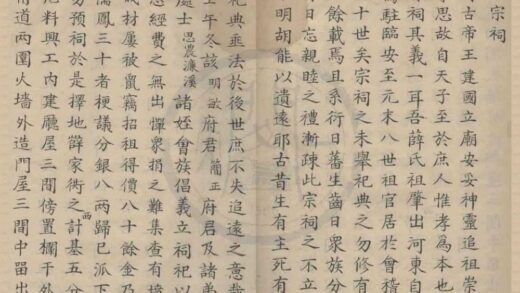 宗祠
古帝王建國立廟安妥神靈追祖崇
思故自天子至於庶人惟孝爲本也
祠其義一耳吾薛氏祖肇出河東自
駕駐臨安至元末八世祖官居於會稽
十世矣宗祠之未舉祀典之勿修有
餘載焉且系衍日蕃生齒日衆族分
日忘親睦之禮漸疎此宗祠之不立
明胡能以遺遠耶古昔生有主死有
祀典垂法於後世庶不失追遠之意哉
壬午冬該明府君蘭正府君及諸弟
處士思農濂溪諸姪會族倡義立祠祀以
慮經費之無出憚衆捐之難集查有墳
伐材屢被竊招祖得價八十餘金乃
儒鳳三十者梗議分銀八兩歸已派下
勿預祠於是擇地薛家衖之西計基五分
料興工內建廳屋三間傍置欄干外
甬道兩圍火墻外造門屋三間中畱出